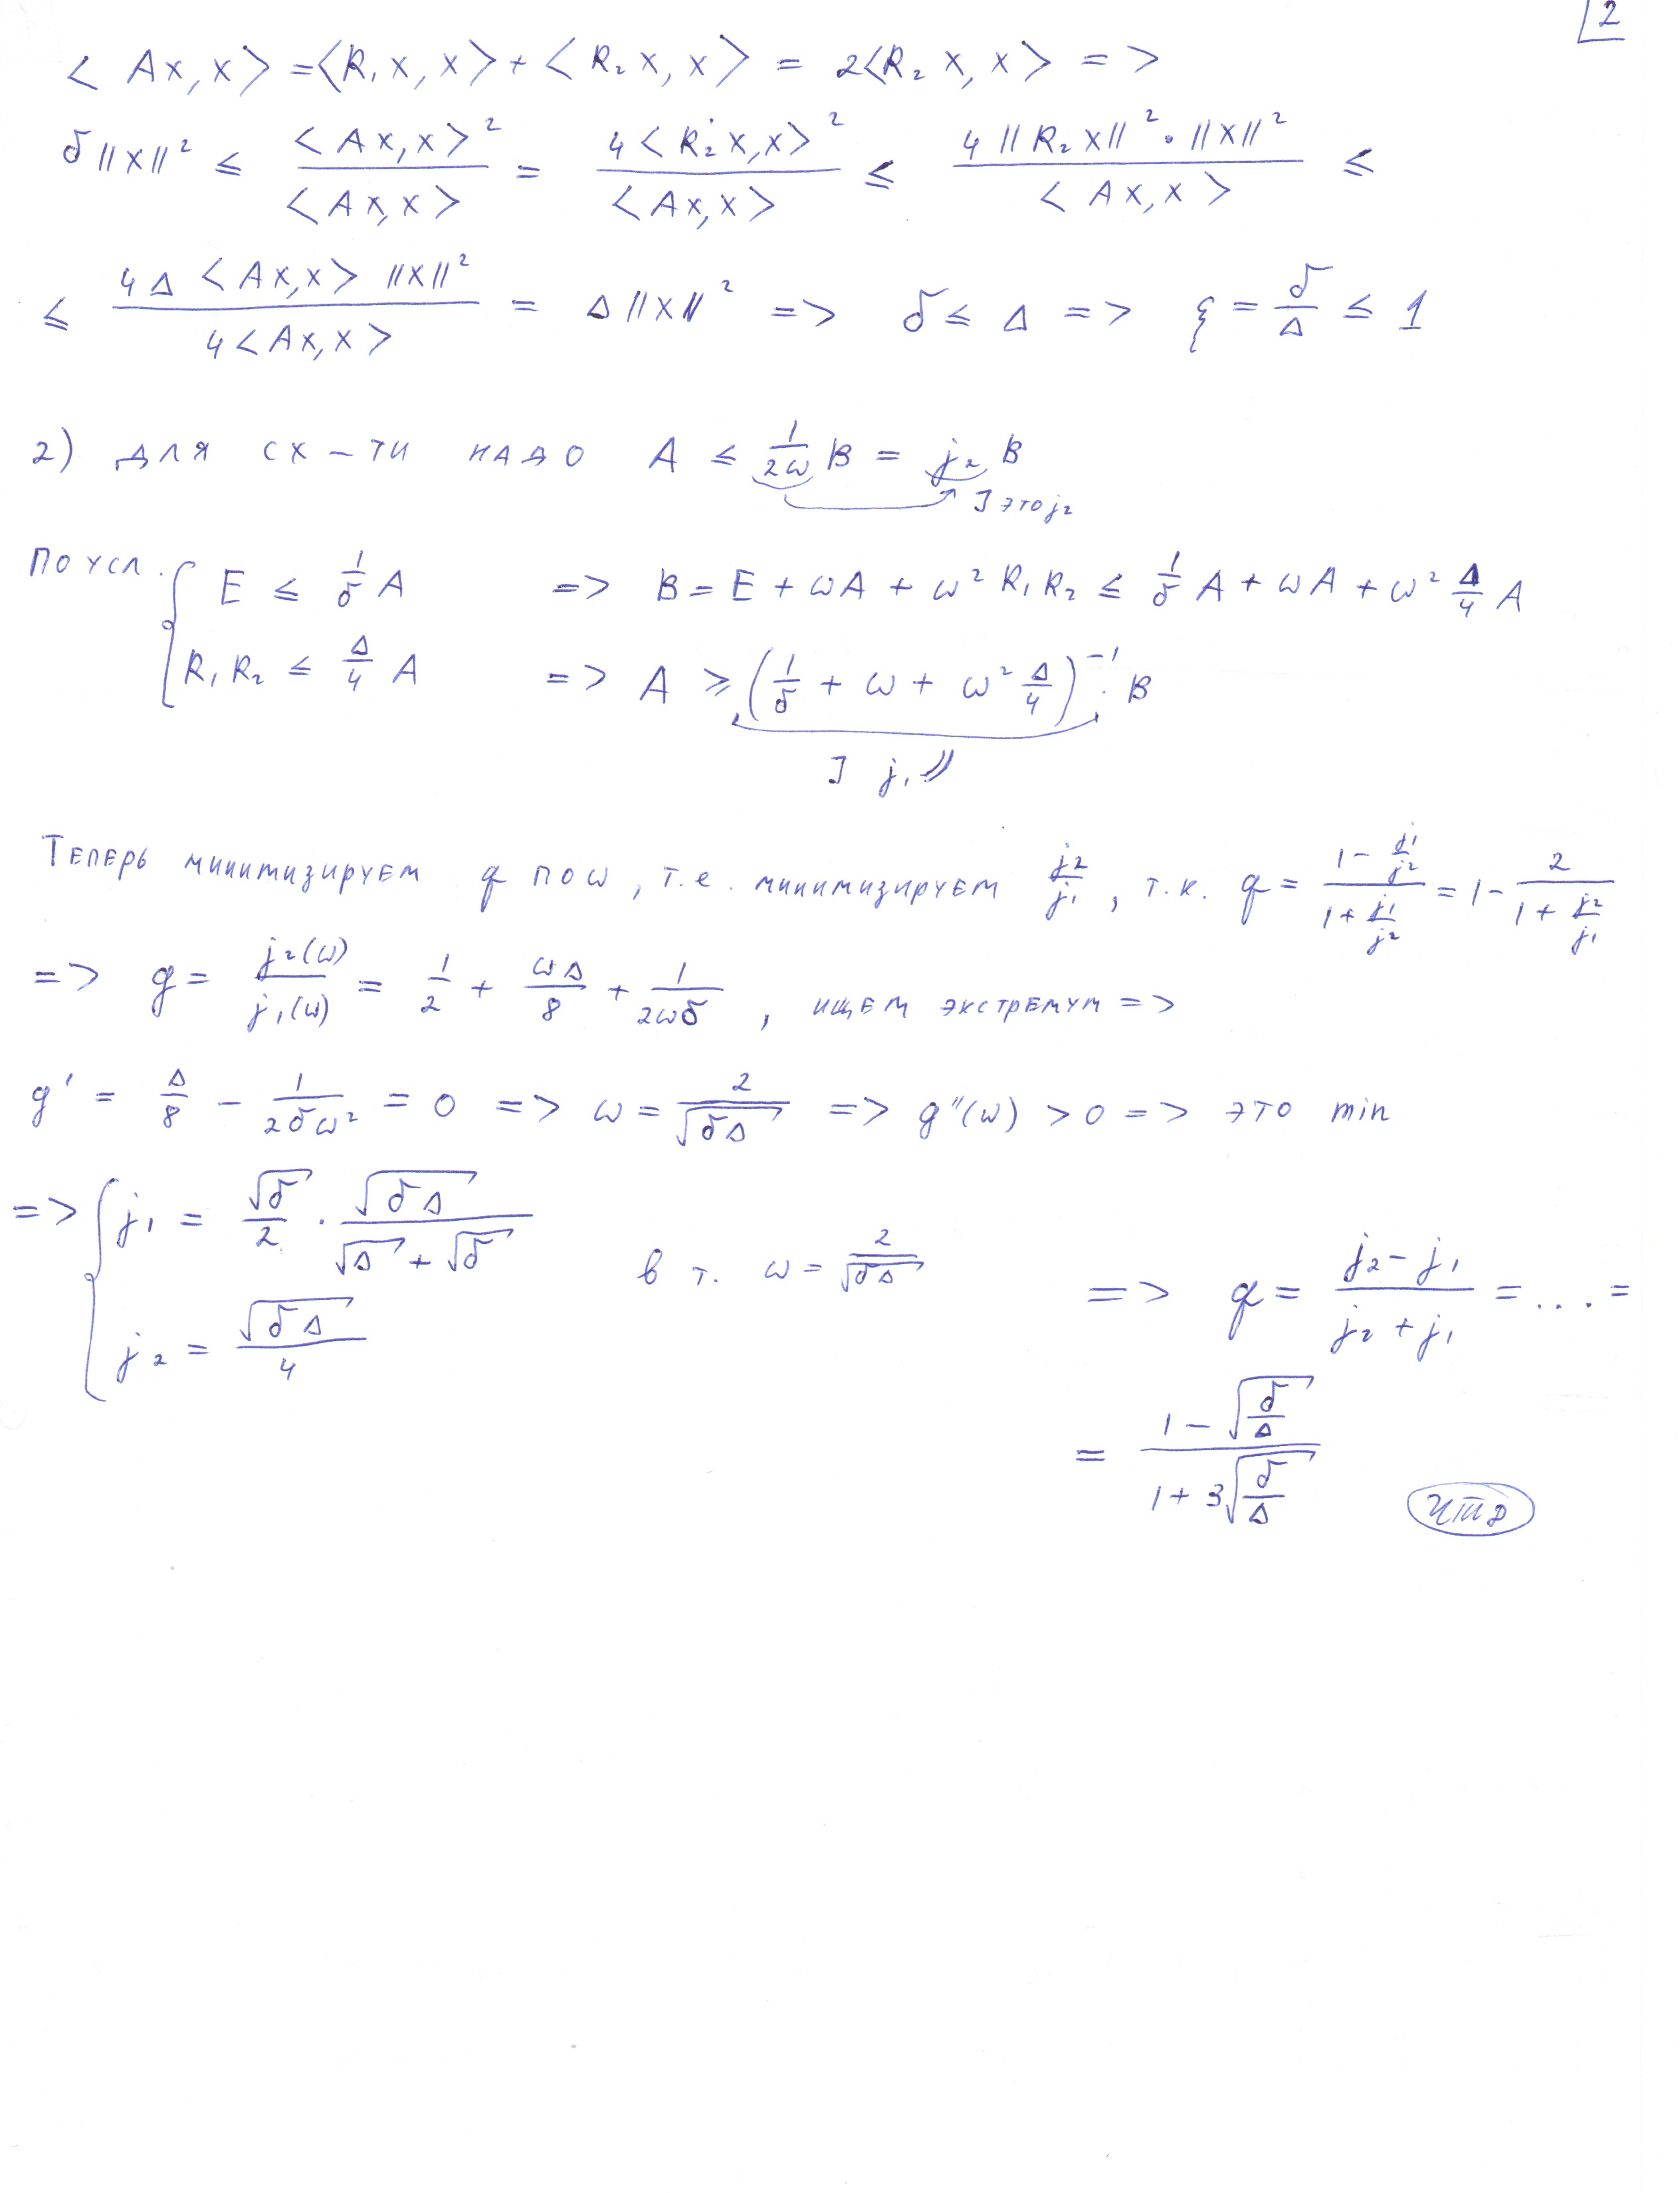 2
< Ax, x > = <R₁x, x> + < R₂x, x > = 2<R₂x, x> =>
δ||x||² ≤ <Ax, x>² / <Ax, x> = 4<R₂x, x>² / <Ax, x> ≤ 4||R₂x||² · ||x||² / <Ax, x> ≤
≤ 4Δ <Ax, x> ||x||² / 4<Ax, x> = Δ||x||² => δ ≤ Δ => ξ = δ/Δ ≤ 1
2) для сх-ти надо A ≤ 1/(2ω) B = j₂ B
] это j₂
по усл. { E ≤ 1/δ A => B = E + ωA + ω² R₁R₂ ≤ 1/δ A + ωA + ω² Δ/4 A
R₁R₂ ≤ Δ/4 A => A ≥ (1/δ + ω + ω² Δ/4)⁻¹ · B
] j₁ //
Теперь минимизируем q по ω, т.е. минимизируем j₂/j₁, т.к. q = (1 - j₁/j₂) / (1 + j₁/j₂) = 1 - 2 / (1 + j₂/j₁)
=> g = j₂(ω) / j₁(ω) = 1/2 + ωΔ/8 + 1/(2ωδ), ищем экстремум =>
g' = Δ/8 - 1/(2δω²) = 0 => ω = 2/√(δΔ) => g''(ω) > 0 => это min
=> { j₁ = √δ/2 · √(δΔ) / (√Δ + √δ)
в т. ω = 2/√(δΔ) => q = (j₂ - j₁) / (j₂ + j₁) = .... =
j₂ = √(δΔ) / 4
= (1 - √(δ/Δ)) / (1 + 3√(δ/Δ))
чтд